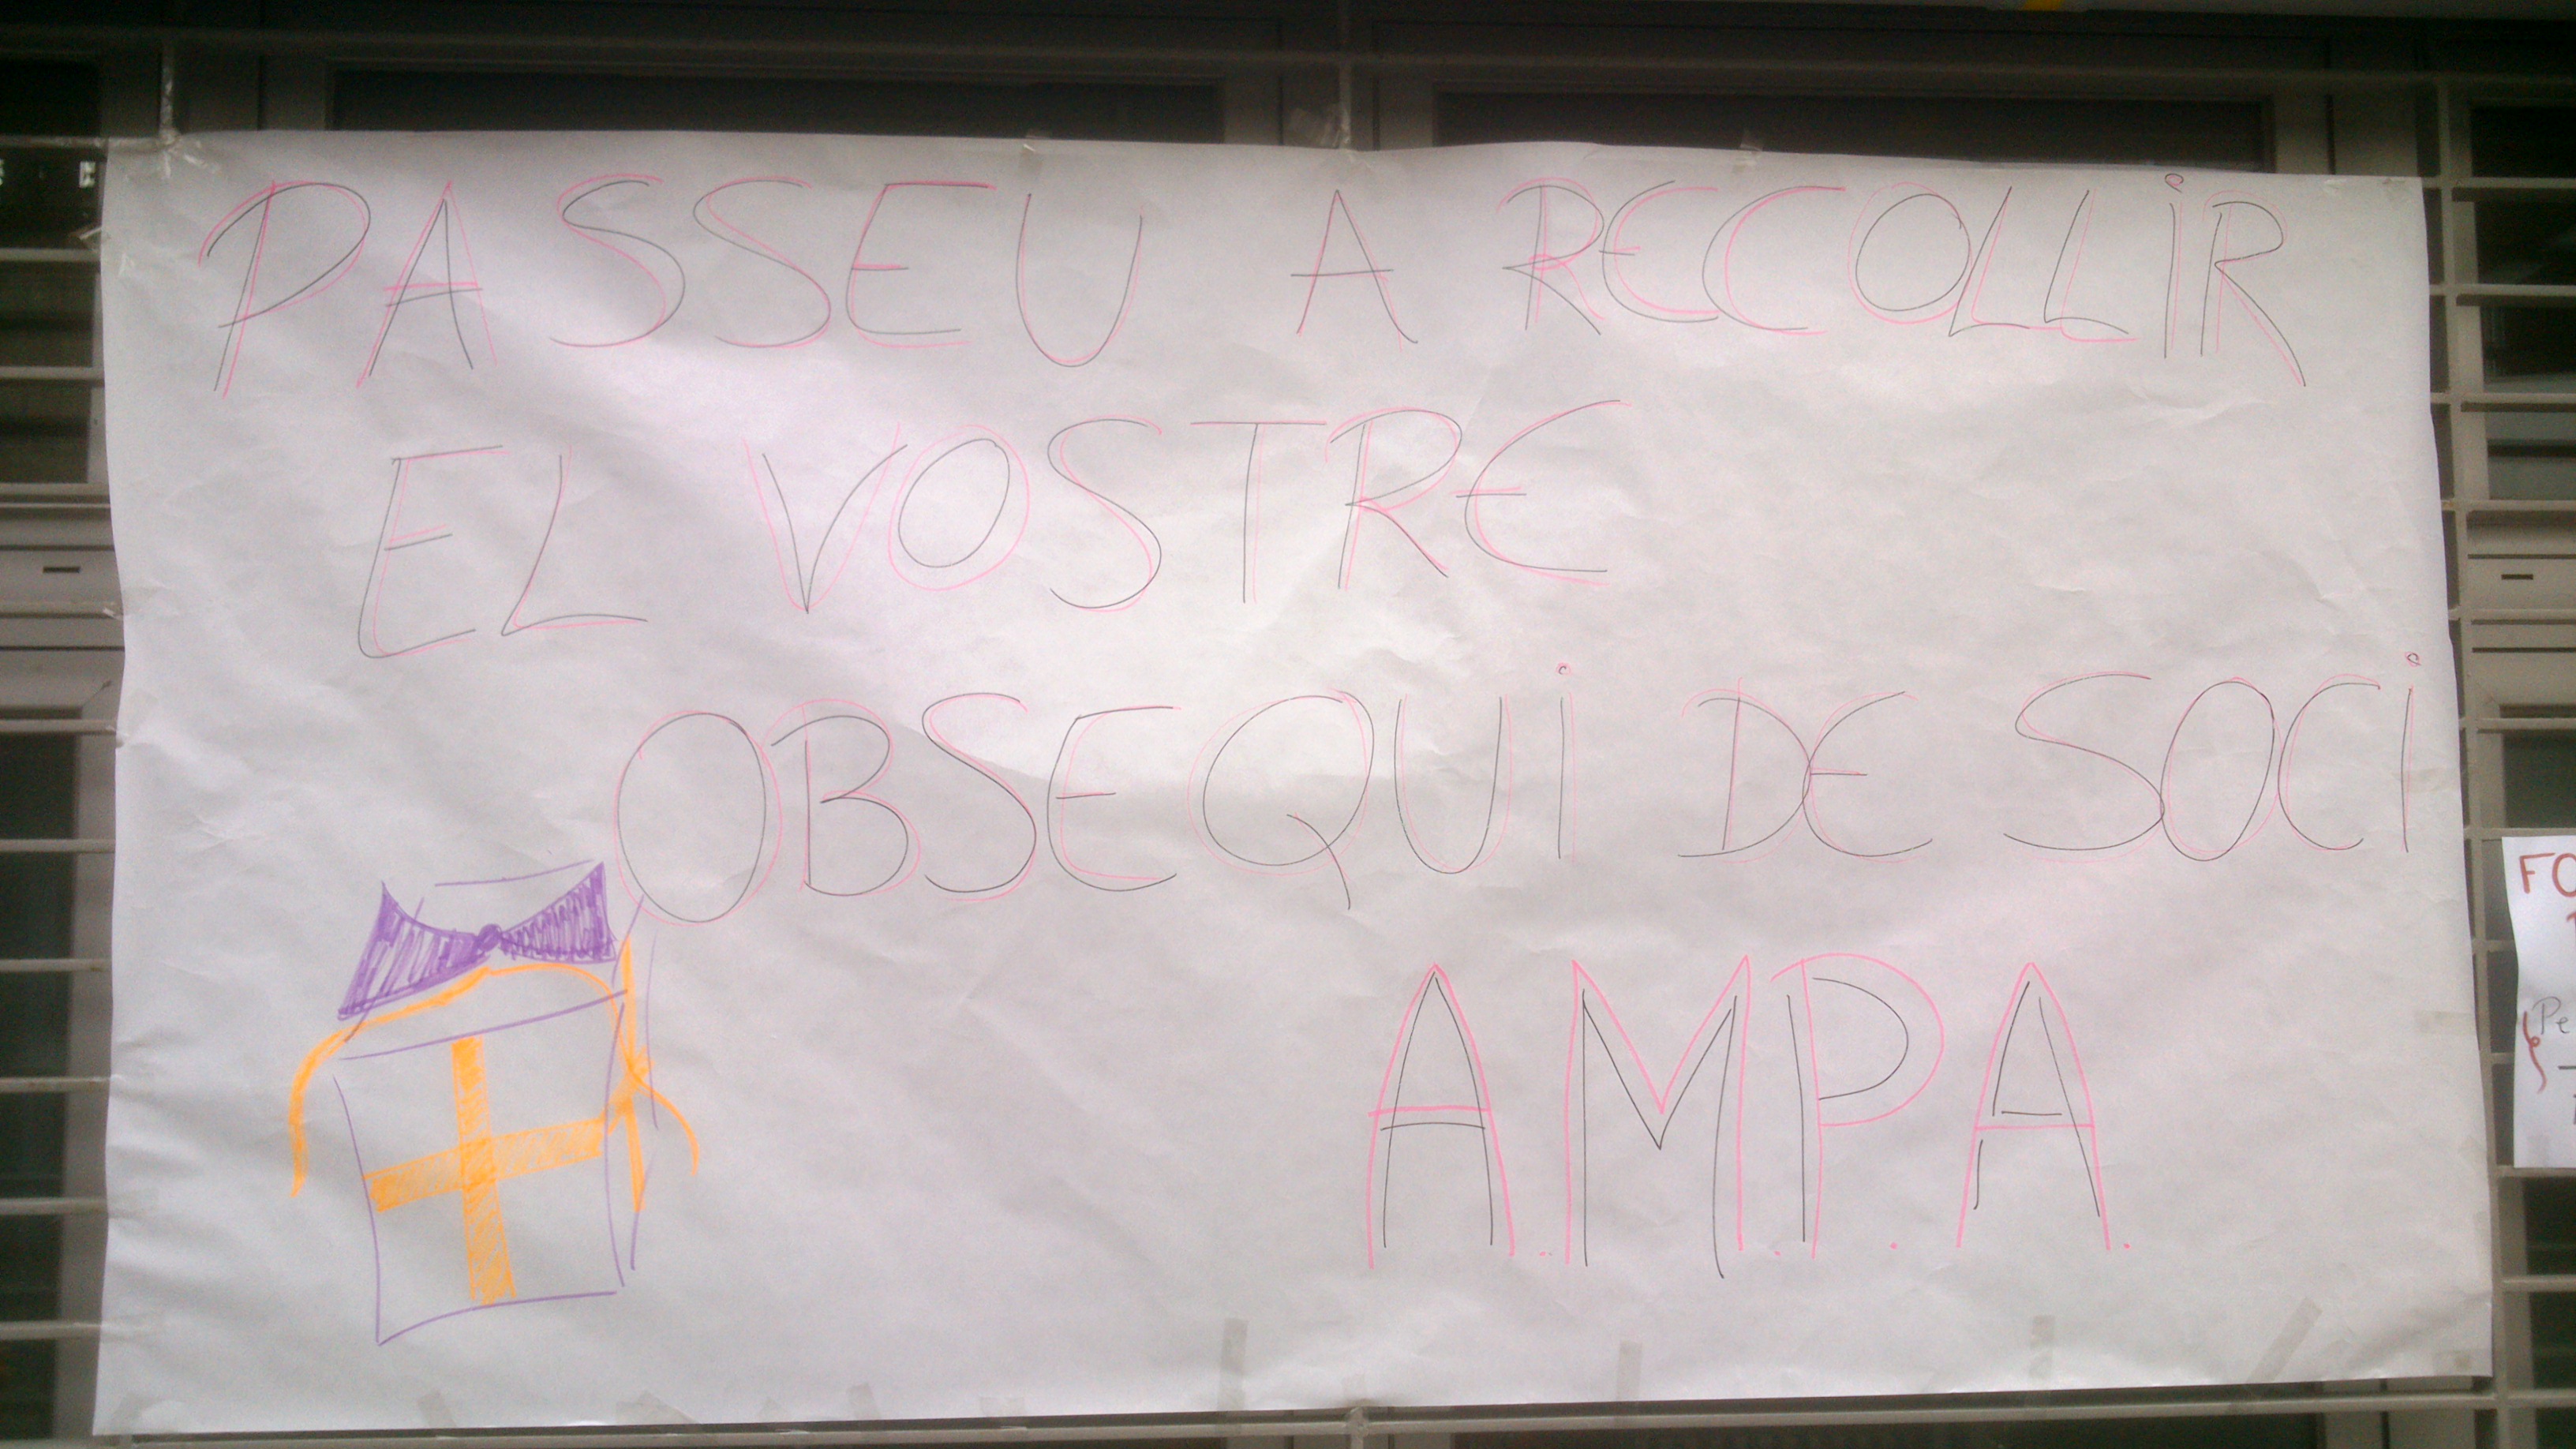 PASSEU A RECOLLIR
EL VOSTRE
OBSEQUI DE SOCI
A.M.P.A.
FO
Pe